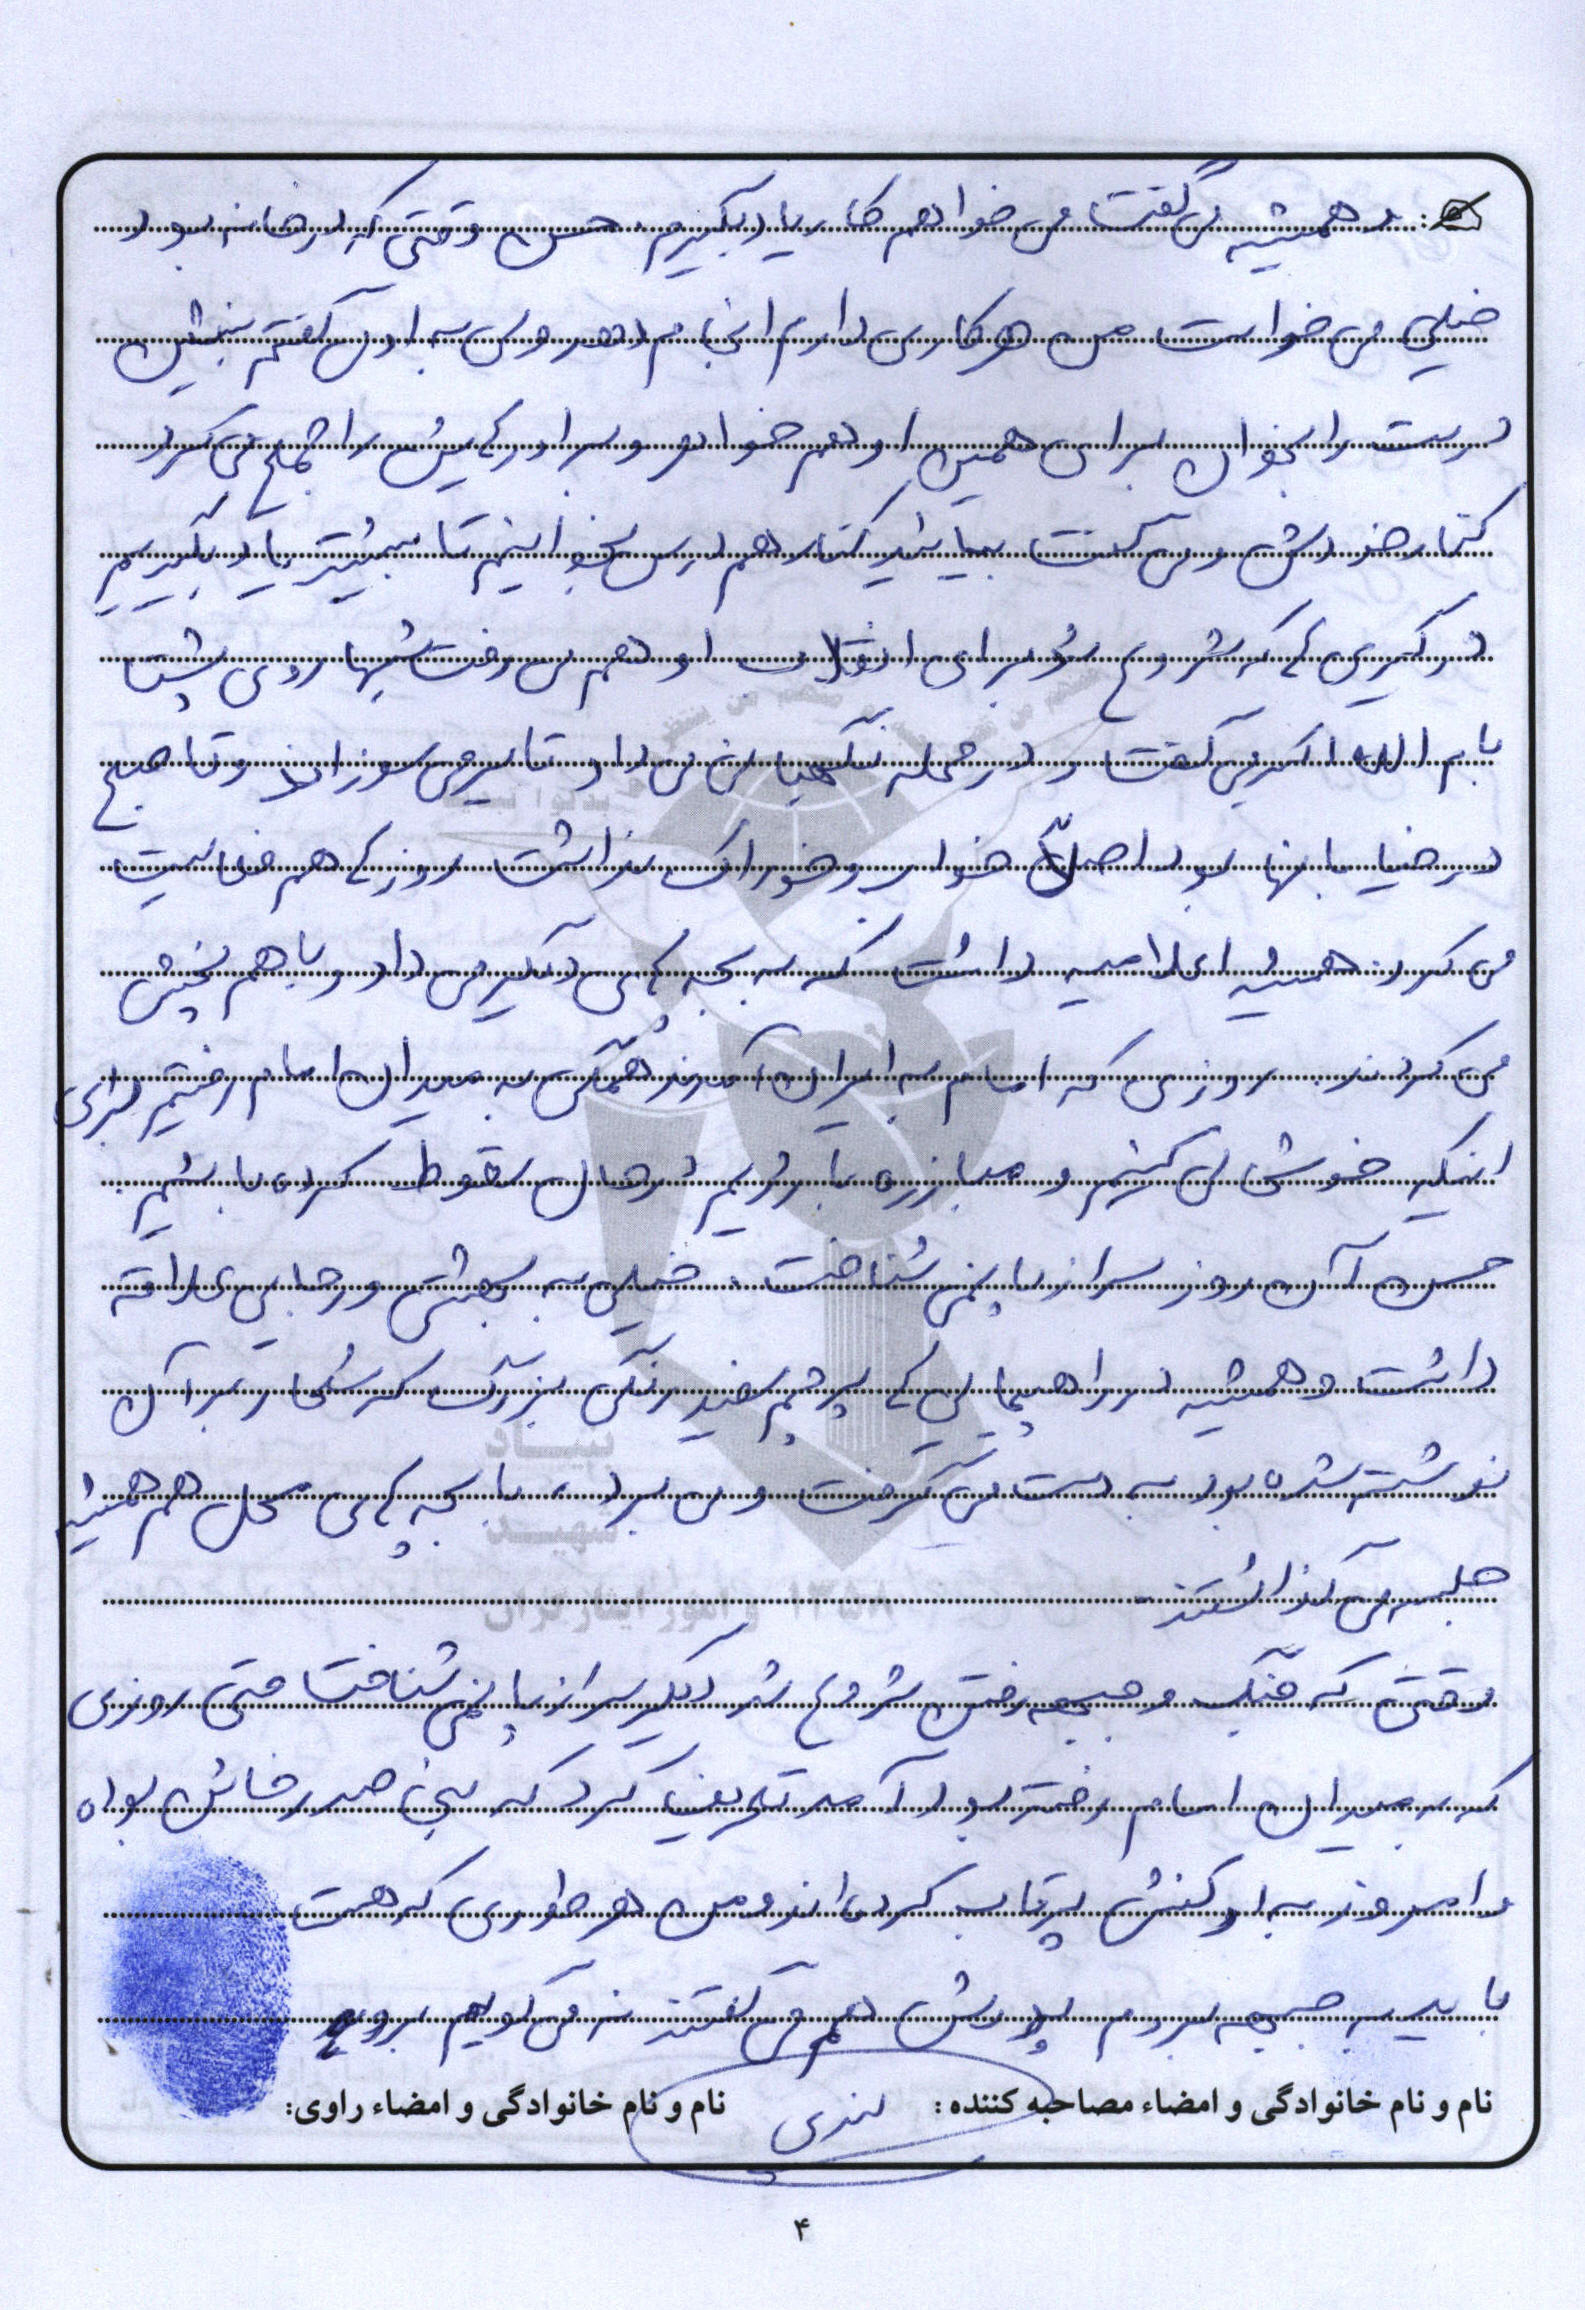 و همیشه می گفت می خواهم کار یاد بگیرم. حسن وقتی که در خانه بود
خیلی می خواست من هر کاری دارم انجام دهد ولی به او می گفتم بنشین
درست را بخوان برای همین او هم خواهر و برادرهایش را جمع می کرد
کنار خودش و می گفت بیائید کنار هم درس بخوانیم تا بیشتر یاد بگیریم
درگیری ها که شروع شد برای انقلاب او هم می رفت شبها روی پشت
بام الله اکبر می گفت و در محله نگهبانی می داد تایر می سوزاند و تا صبح
در خیابانها بود اصلاً خواب و خوراک نداشت روزها هم فعالیت
می کرد. همیشه اعلامیه داشت که به بچه های دیگر می داد و با هم پخش
می کردند. روزی که امام به ایران آمدند همگی به میدان امام رفتیم برای
اینکه خوشحالی کنیم و مبارزه با رژیم در حال سقوط کرده باشیم.
حسن آن روز سر از پا نمی شناخت. خیلی به بهشتی و رجایی علاقه
داشت و همیشه در راهپیمایی ها پرچم سفید رنگی بزرگ که شعار بر آن
نوشته شده بود به دست می گرفت و می برد، با بچه های محل هم همیشه
جلسه می گذاشتند.
وقتی که جنگ و جبهه رفتن شروع شد دیگر سر از پا نمی شناخت حتی روزی
که به میدان امام رفته بود آمد تعریف کرد که بنی صدر خائن بوده
و امروز به او کفش پرتاب کرده اند و من هر طوری که هست
باید به جبهه بروم پدرش هم می گفتند نه می گویم برو
نام و نام خانوادگی و امضاء مصاحبه کننده: نام و نام خانوادگی و امضاء راوی:
بنیاد
شهید
و امور ایثارگران ۱۳۵۸
۴